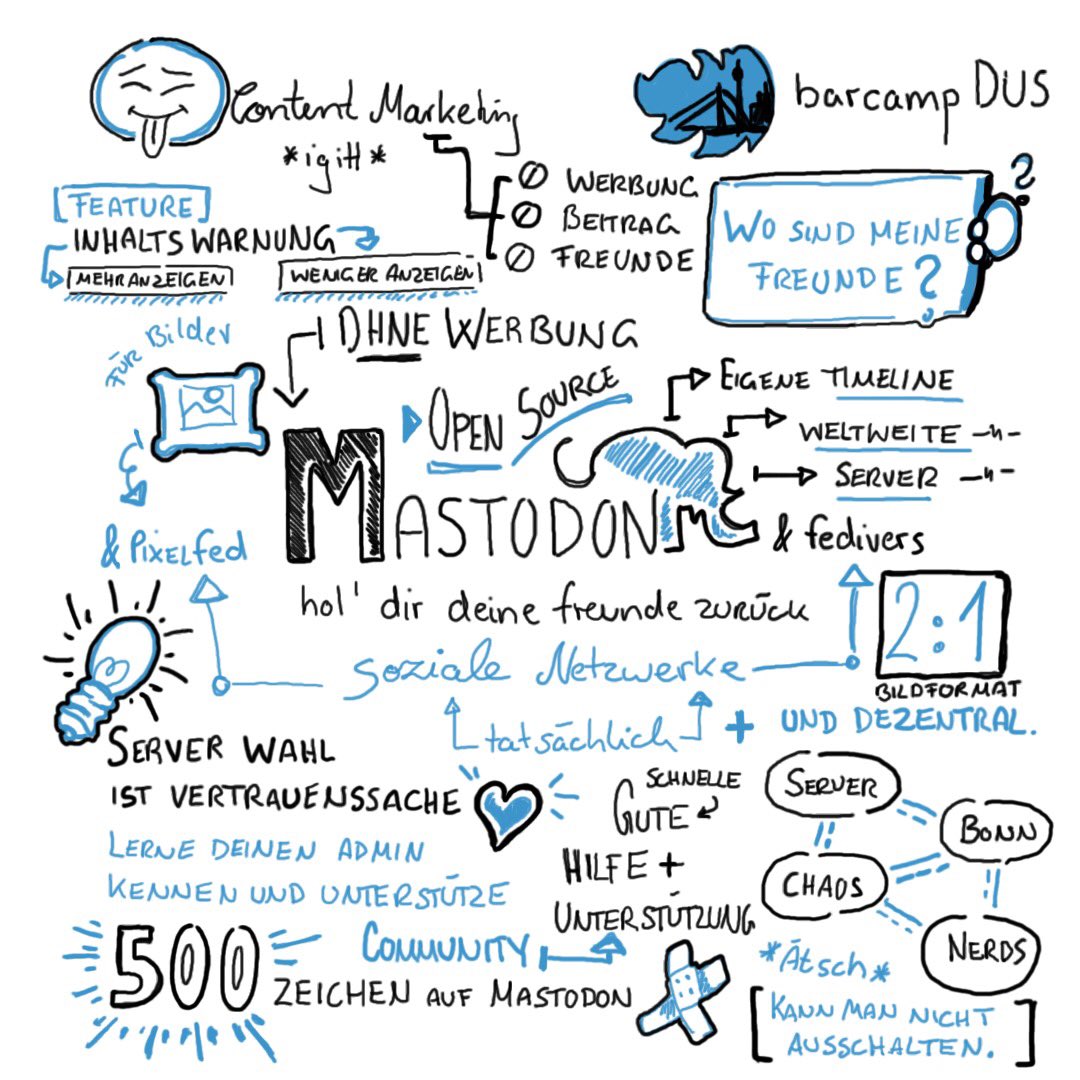 Content Marketing
*igitt*
barcamp DUS
Ø WERBUNG
Ø BEITRAG
Ø FREUNDE
WO SIND MEINE
FREUNDE?
?
[FEATURE]
INHALTSWARNUNG
MEHR ANZEIGEN
WENIGER ANZEIGEN
OHNE WERBUNG
FÜR Bilder
OPEN SOURCE
EIGENE TIMELINE
WELTWEITE -"-
SERVER -"-
MASTODON
& fedivers
& PIXELfed
hol' dir deine freunde zurück
2:1
BILDFORMAT
soziale Netzwerke
tatsächlich
+ UND DEZENTRAL.
SERVER WAHL
IST VERTRAUENSSACHE
LERNE DEINEN ADMIN
KENNEN UND UNTERSTÜTZE
SCHNELLE
GUTE
HILFE +
UNTERSTÜTZUNG
COMMUNITY
500
ZEICHEN AUF MASTODON
SERVER
BONN
CHAOS
NERDS
*Ätsch*
[KANN MAN NICHT
AUSSCHALTEN.]